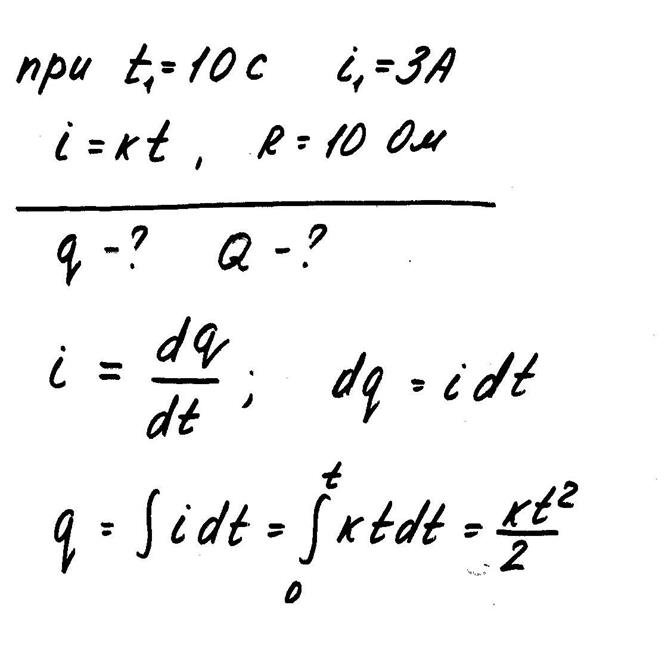 при t₁ = 10 с i₁ = 3А
i = кt, R = 10 Ом
q - ? Q - ?
i = dq/dt ; dq = i dt
q = ∫ i dt = ∫₀ᵗ кt dt = кt²/2